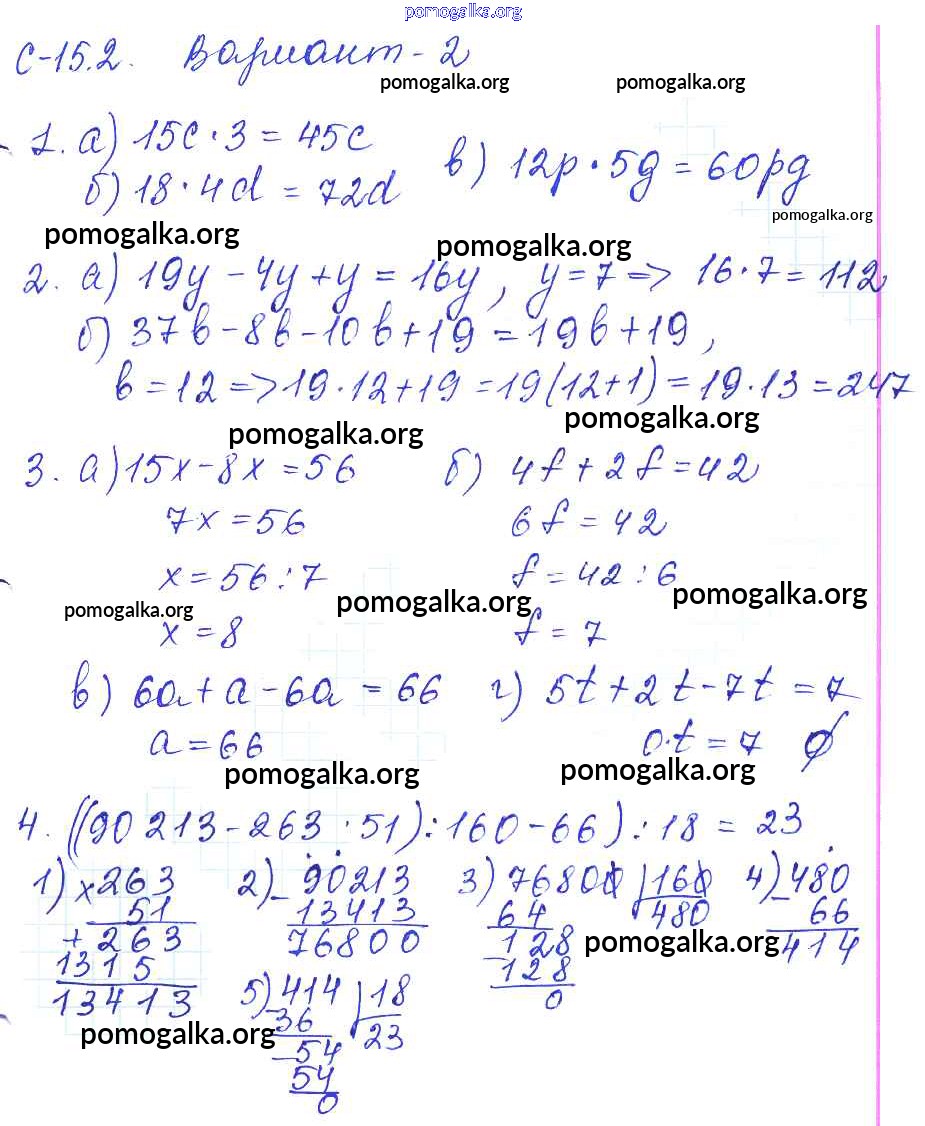 pomogalka.org
С-15.2. Вариант-2
pomogalka.org pomogalka.org
1. а) 15c · 3 = 45c
б) 18 · 4d = 72d
в) 12p · 5g = 60pg
pomogalka.org
pomogalka.org pomogalka.org
2. а) 19y - 4y + y = 16y, y = 7 => 16 · 7 = 112
б) 37b - 8b - 10b + 19 = 19b + 19,
b = 12 => 19 · 12 + 19 = 19(12 + 1) = 19 · 13 = 247
pomogalka.org pomogalka.org
3. а) 15x - 8x = 56 б) 4f + 2f = 42
7x = 56 6f = 42
x = 56 : 7 f = 42 : 6
pomogalka.org pomogalka.org pomogalka.org
x = 8 f = 7
в) 6a + a - 6a = 66 г) 5t + 2t - 7t = 7
a = 66 0·t = 7 ∅
pomogalka.org pomogalka.org
4. ((90 213 - 263 · 51) : 160 - 66) : 18 = 23
1) × 263 2) - 90213 3) 76800 | 160 4) - 480
51 13413 64 480 66
+ 263 76800 - 128 414
pomogalka.org
1315 128
13413 0
5) 414 | 18
36 23
pomogalka.org
- 54
54
0